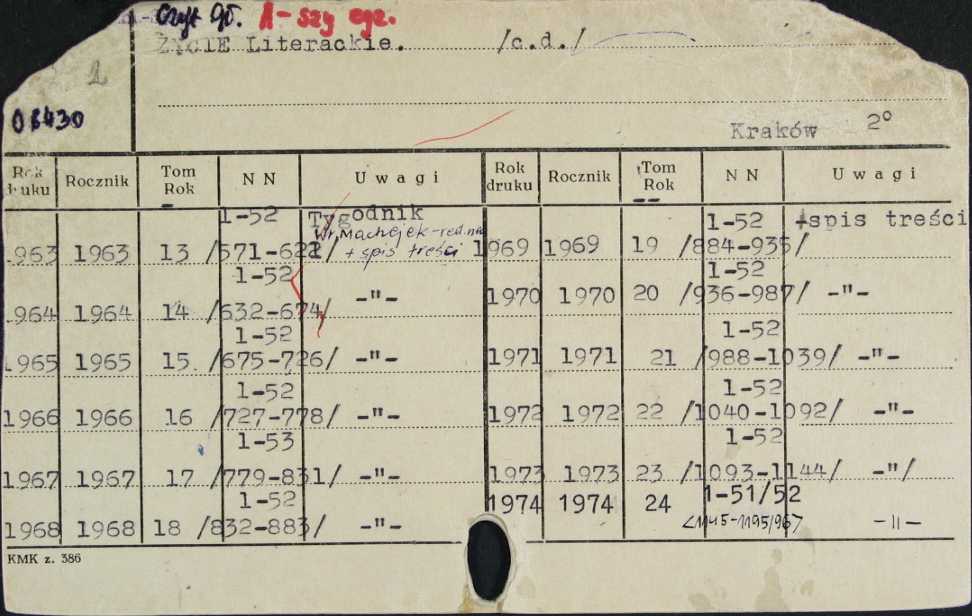 Czyt gł. A-szy egz.
ŻYCIE Literackie. /c.d./
2
08430
Kraków 2°
Rok druku Rocznik Tom Rok NN Uwagi Rok druku Rocznik Tom Rok NN Uwagi
1-52 Tygodnik 1-52 +spis treści
Wł. Machejek-red.nacz
1963 1963 13 /571-622/ + spis treści 1969 1969 19 /884-935/
1-52 1-52
1964 1964 14 /632-674/ -"- 1970 1970 20 /936-987/ -"-
1-52 1-52
1965 1965 15 /675-726/ -"- 1971 1971 21 /988-1039/ -"-
1-52 1-52
1966 1966 16 /727-778/ -"- 1972 1972 22 /1040-1092/ -"-
1-53 1-52
1967 1967 17 /779-831/ -"- 1973 1973 23 /1093-1144/ -"/
1-52 1974 1974 24 1-51/52
1968 1968 18 /832-883/ -"- <1145-1195/96> -"-
KMK z. 386